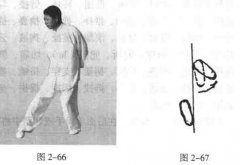 图 2-66
图 2-67